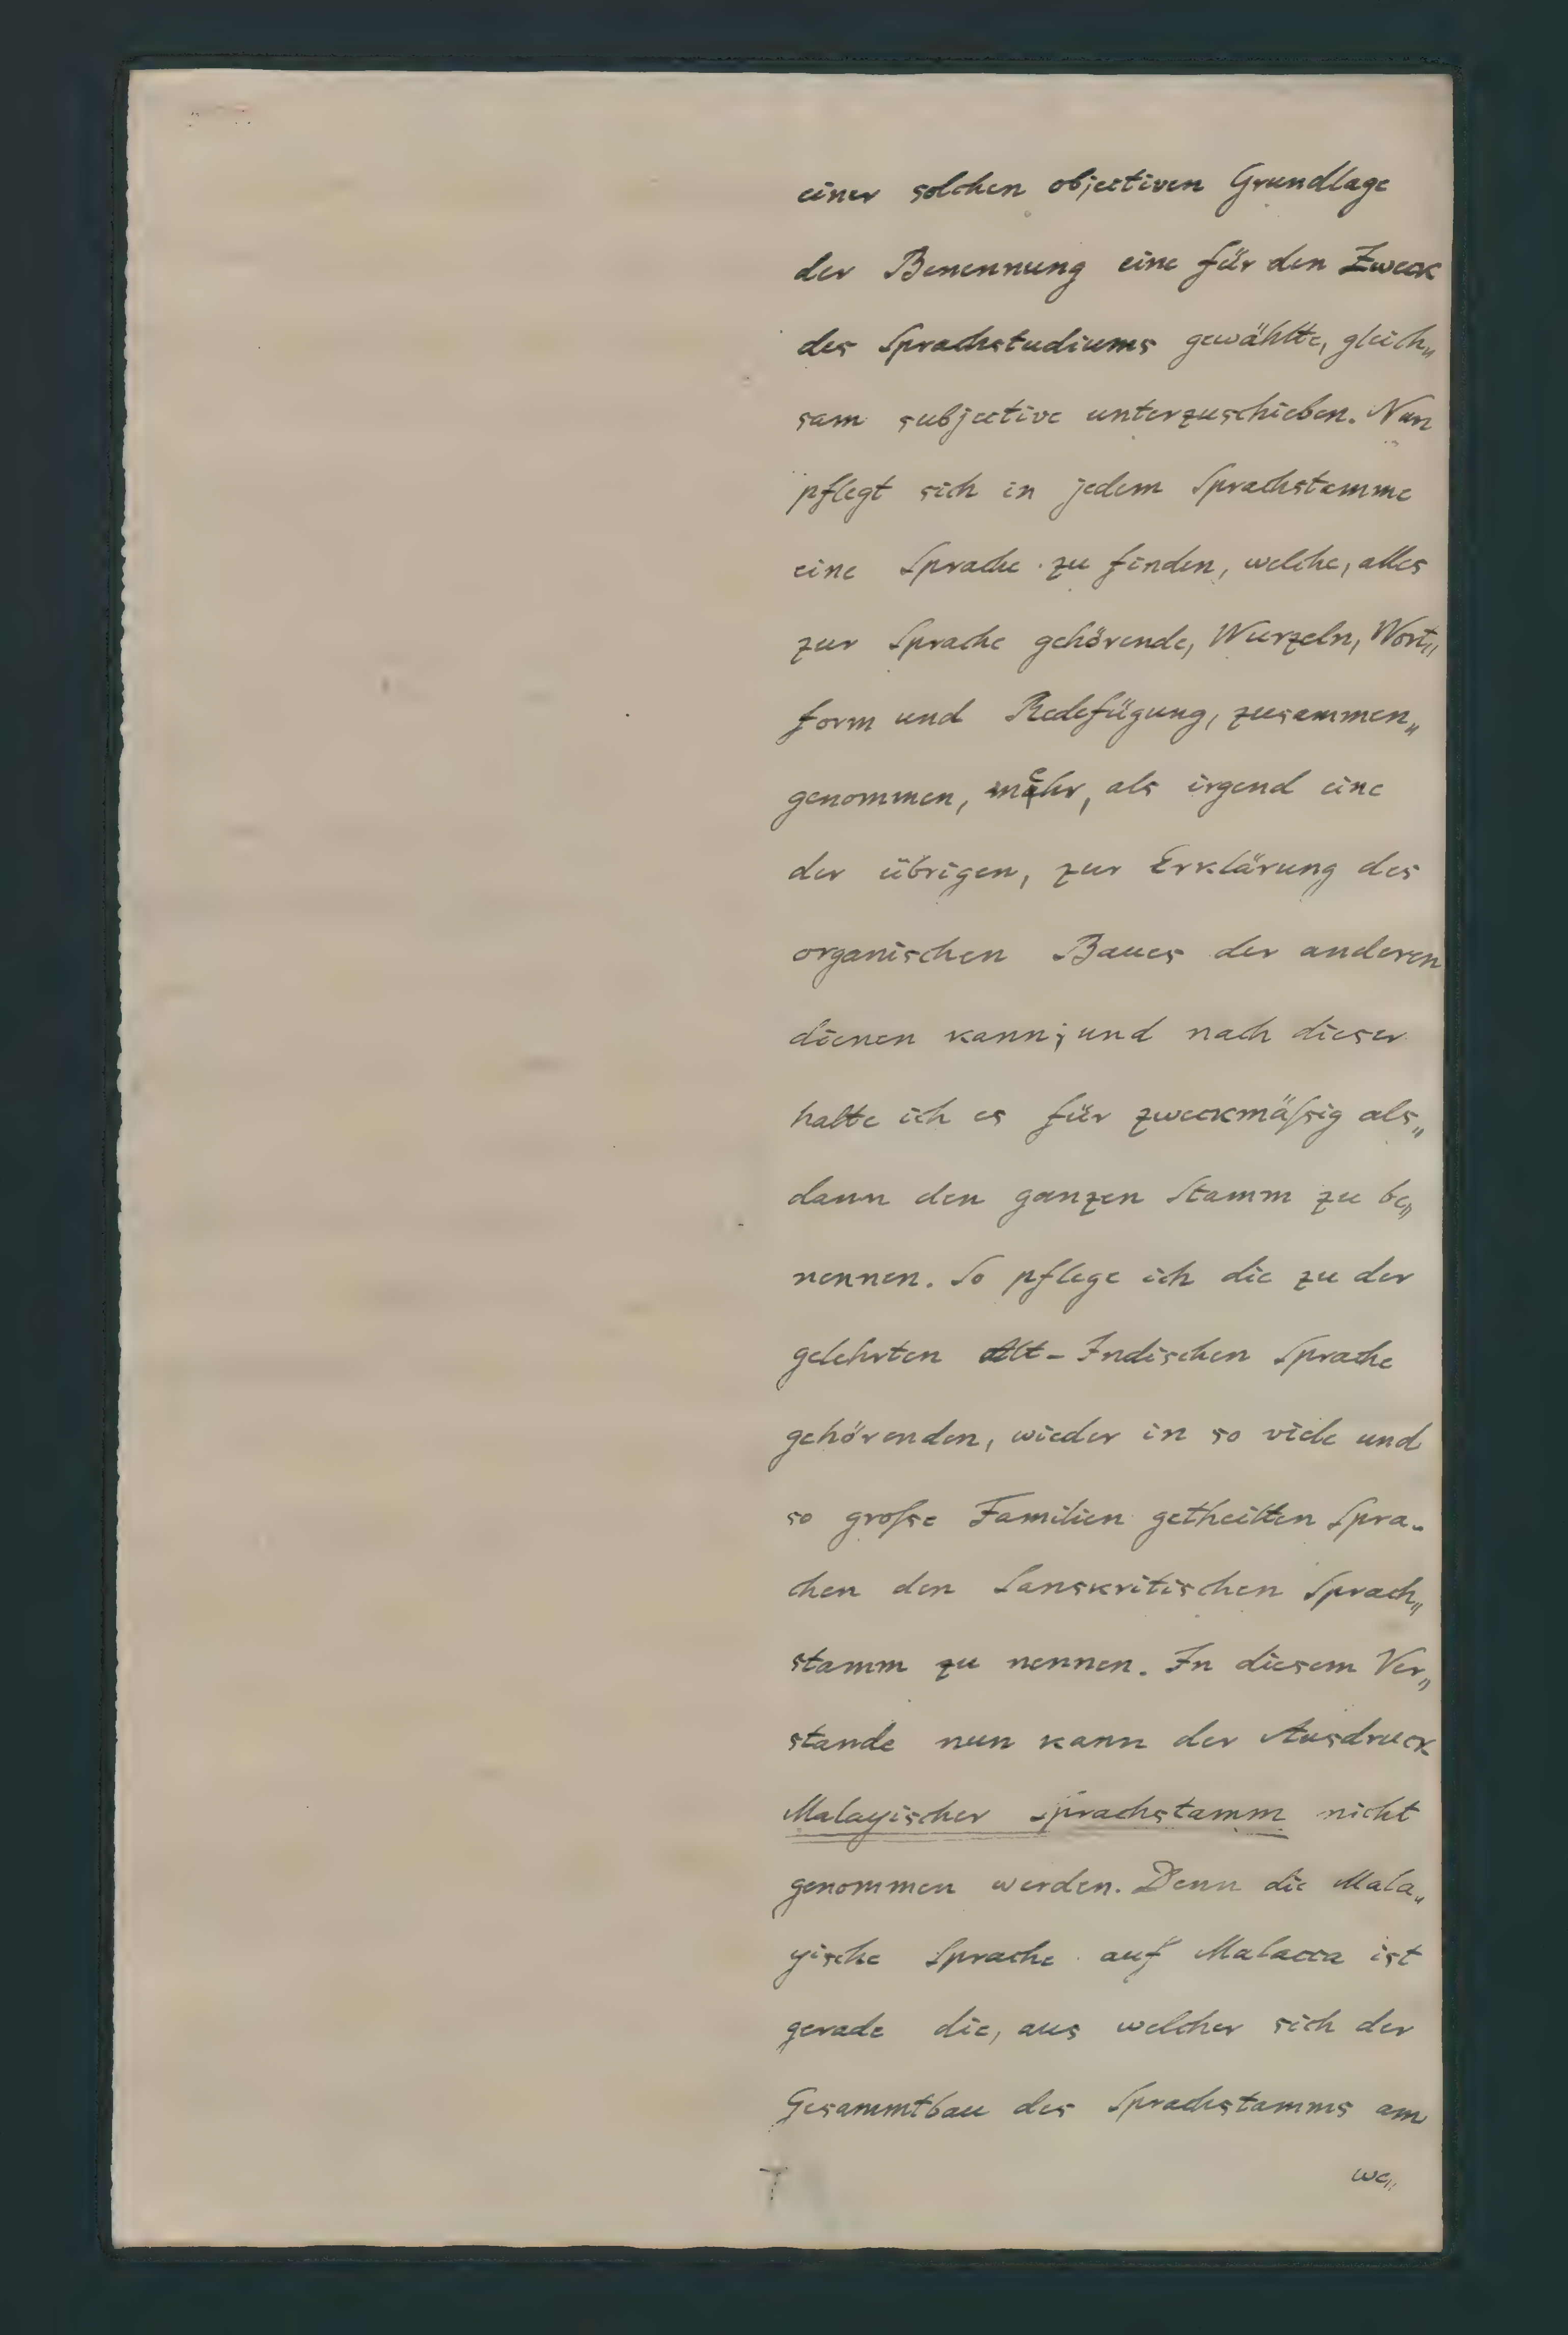 einer solchen objectiven Grundlage
der Benennung eine für den Zweck
des Sprachstudiums gewählte, gleich„
sam subjective unterzuschieben. Nun
pflegt sich in jedem Sprachstamme
eine Sprache zu finden, welche, alles
zur Sprache gehörende, Wurzeln, Wort„
form und Redefügung, zusammen„
genommen, mehr, als irgend eine
der übrigen, zur Erklärung des
organischen Baues der anderen
dienen kann; und nach dieser
halte ich es für zweckmäßig als„
dann den ganzen Stamm zu be„
nennen. So pflege ich die zu der
gelehrten Alt-Indischen Sprache
gehörenden, wieder in so viele und
so große Familien getheilten Spra-
chen den Sanskritischen Sprach„
stamm zu nennen. In diesem Ver„
stande nun kann der Ausdruck
Malayischer Sprachstamm nicht
genommen werden. Denn die Mala„
yische Sprache auf Malacca ist
gerade die, aus welcher sich der
Gesammtbau des Sprachstamms am
we„